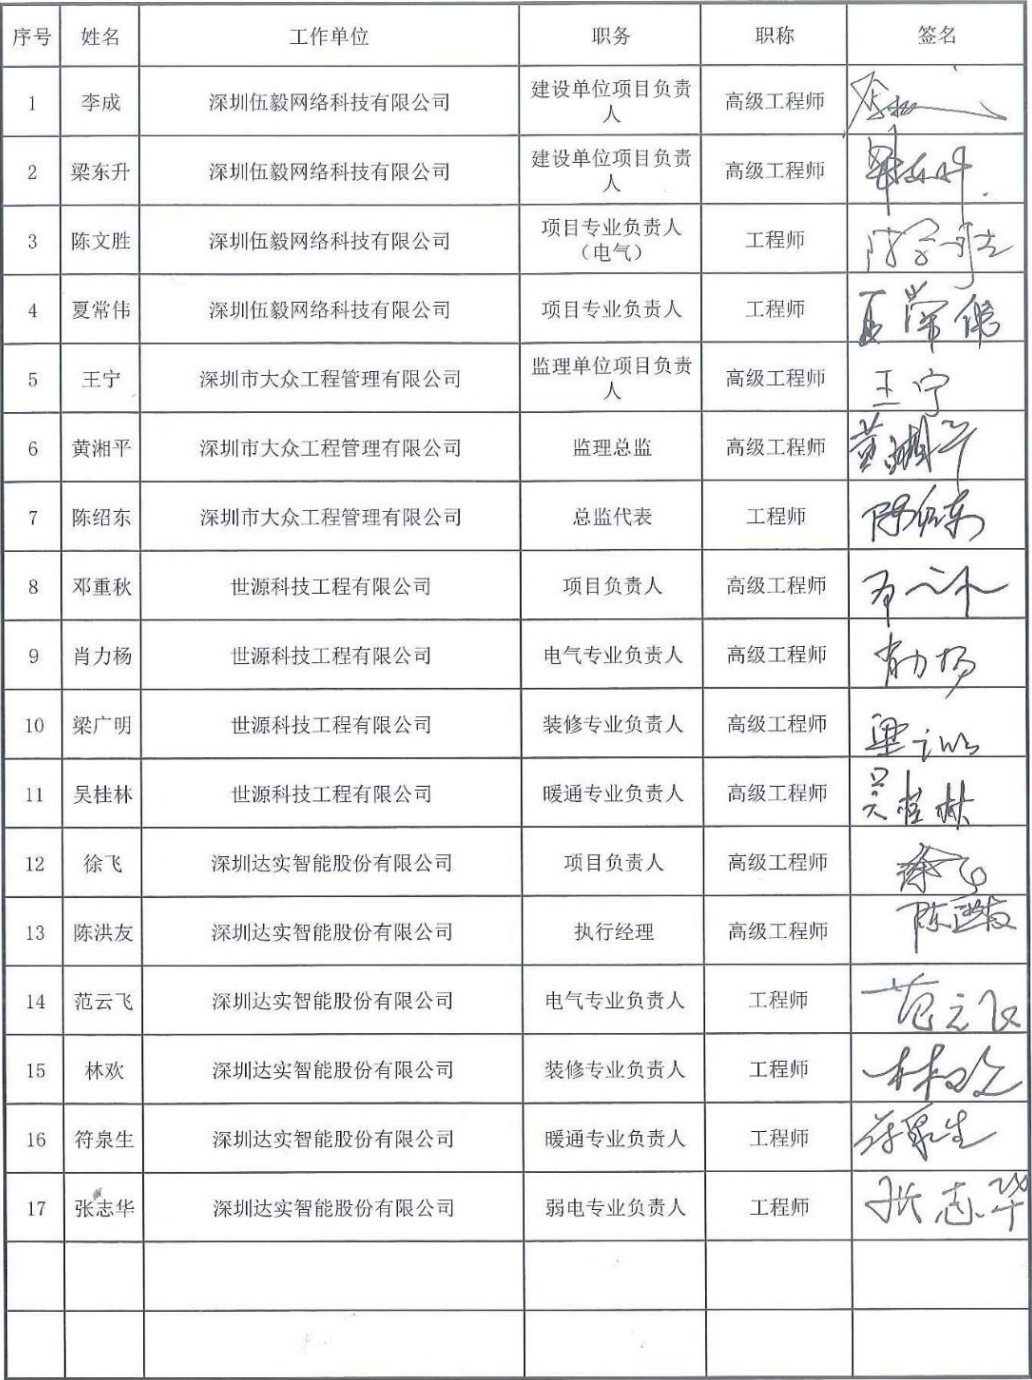 序号 姓名 工作单位 职务 职称 签名
1 李成 深圳伍毅网络科技有限公司 建设单位项目负责人 高级工程师
2 梁东升 深圳伍毅网络科技有限公司 建设单位项目负责人 高级工程师 梁东升
3 陈文胜 深圳伍毅网络科技有限公司 项目专业负责人（电气） 工程师
4 夏常伟 深圳伍毅网络科技有限公司 项目专业负责人 工程师 夏常伟
5 王宁 深圳市大众工程管理有限公司 监理单位项目负责人 高级工程师 王宁
6 黄湘平 深圳市大众工程管理有限公司 监理总监 高级工程师 黄湘平
7 陈绍东 深圳市大众工程管理有限公司 总监代表 工程师 陈绍东
8 邓重秋 世源科技工程有限公司 项目负责人 高级工程师
9 肖力杨 世源科技工程有限公司 电气专业负责人 高级工程师 肖力杨
10 梁广明 世源科技工程有限公司 装修专业负责人 高级工程师 梁广明
11 吴桂林 世源科技工程有限公司 暖通专业负责人 高级工程师 吴桂林
12 徐飞 深圳达实智能股份有限公司 项目负责人 高级工程师 徐飞
13 陈洪友 深圳达实智能股份有限公司 执行经理 高级工程师 陈洪友
14 范云飞 深圳达实智能股份有限公司 电气专业负责人 工程师 范云飞
15 林欢 深圳达实智能股份有限公司 装修专业负责人 工程师 林欢
16 符泉生 深圳达实智能股份有限公司 暖通专业负责人 工程师 符泉生
17 张志华 深圳达实智能股份有限公司 弱电专业负责人 工程师 张志华